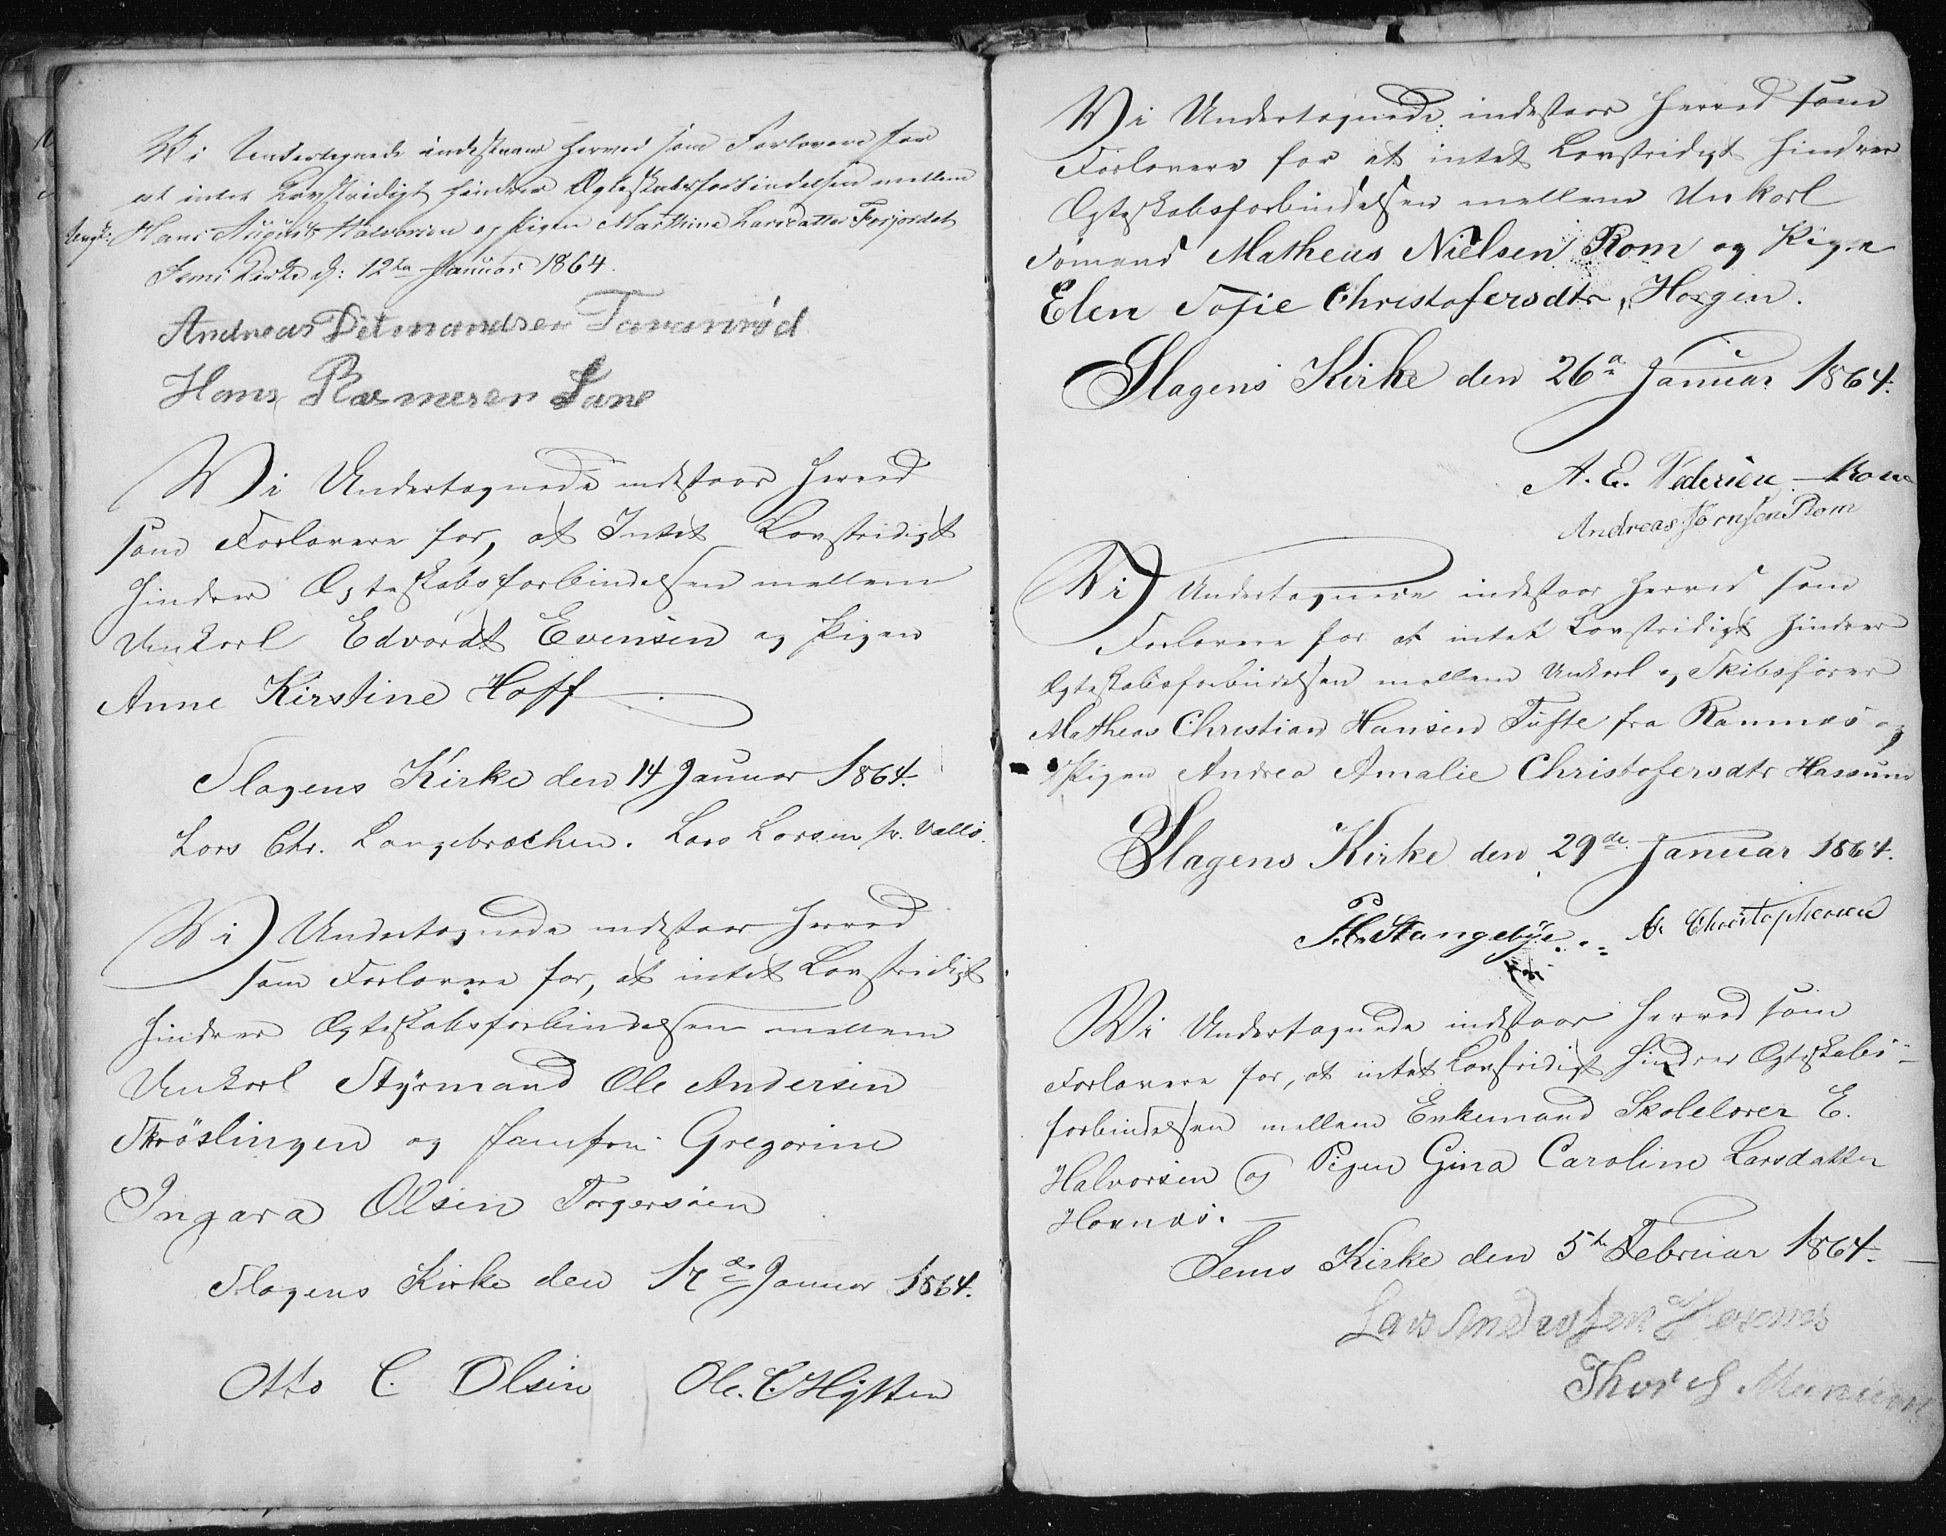 Wi Undertegnede indestaaer herved som Forlovere for
at intet Lovstridigt hindrer Egteskabsforbindelsen mellem
Ungk: Hans August Halvorsen og Pigen Marthine Larsdatter Forjordet
Sems Kirke d: 12te Januar 1864.
Andreas Ditmandsen
Hans Rasmusen
Wi Undertegnede indestaaer herved
som Forlovere for, at Intet Lovstridigt
hindrer Egteskabsforbindelsen mellem
Unkarl Edvardt Evensen og Pigen
Anne Kirstine Hoff
Slagens Kirke den 14 Januar 1864.
Lars Chr. Langebræchen. Lars Larsen p. Vallø.
Wi Undertegnede indestaaer herved
som Forlovere for, at intet Lovstridigt
hindrer Egteskabsforbindelsen mellem
Unkarl Styrmand Ole Andersen
Trøslingen og Jomfru Gregorine
Ingara Olsen Torgersøen
Slagens Kirke den 17de Januar 1864.
Otto C. Olsen Ole. C. Hytten
Wi Undertegnede indestaaer herved som
Forlovere for at intet Lovstridigt hindrer
Egteskabsforbindelsen mellem Unkarl
Sømand Matheus Nielsen Rom og Pigen
Elen Sofie Christofersdtr, Horgen.
Slagens Kirke den 26a Januar 1864.
A. E. Pedersen Rom
Andreas Jørnsen Rom
Wi Undertegnede indestaaer herved som
Forlovere for at intet Lovstridigt hindrer
Egteskabsforbindelsen mellem Unkarl og Skibsfører
Matheas Christian Hansen Tufte fra Ramnæs og
Pigen Andrea Amalie Christofersdtr Hassum
Slagens Kirke den 29de Januar 1864.
Stangebye A. Christophersen
Wi Undertegnede indestaaer herved som
Forlovere for, at intet Lovstridigt hindrer Egteskabs-
forbindelsen mellem Enkemand Skolelærer E.
Halvorsen og Pigen Gina Caroline Larsdatter
Hornæs.
Sems Kirke den 5te Februar 1864.
Lars Andersen
Thor